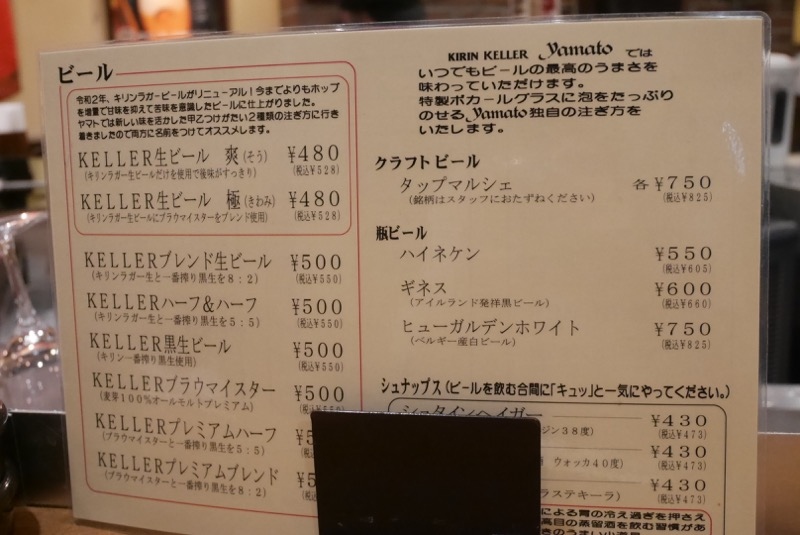 ビール
令和2年、キリンラガービールがリニューアル!今までよりもホップ
を増量で甘味を抑えて苦味を意識したビールに仕上がりました。
ヤマトでは新しい味を活かした甲乙つけがたい2種類の注ぎ方に行き
着きましたので両方に名前をつけてオススメします。
KELLER生ビール 爽(そう) ¥480
(キリンラガー生ビールだけを使用で後味がすっきり) (税込¥528)
KELLER生ビール 極(きわみ) ¥480
(キリンラガー生ビールにブラウマイスターをブレンド使用) (税込¥528)
KELLERブレンド生ビール ¥500
(キリンラガー生と一番搾り黒生を8:2) (税込¥550)
KELLERハーフ&ハーフ ¥500
(キリンラガー生と一番搾り黒生を5:5) (税込¥550)
KELLER黒生ビール ¥500
(キリン一番搾り黒生使用) (税込¥550)
KELLERブラウマイスター ¥500
(麦芽100%オールモルトプレミアム) (税込¥550)
KELLERプレミアムハーフ ¥5
(ブラウマイスターと一番搾り黒生を5:5)
KELLERプレミアムブレンド ¥5
(ブラウマイスターと一番搾り黒生を8:2)
KIRIN KELLER Yamato では
いつでもビールの最高のうまさを
味わっていただけます。
特製ポカールグラスに泡をたっぷり
のせるYamato独自の注ぎ方を
いたします。
クラフトビール
タップマルシェ 各 ¥750
(銘柄はスタッフにおたずねください) (税込¥825)
瓶ビール
ハイネケン ¥550
(税込¥605)
ギネス ¥600
(アイルランド発祥黒ビール) (税込¥660)
ヒューガルデンホワイト ¥750
(ベルギー産白ビール) (税込¥825)
シュナップス(ビールを飲む合間に「キュッ」と一気にやってください。)
シュタインヘイガー ¥430
ジン38度) (税込¥473)
¥430
ウォッカ40度) (税込¥473)
¥430
ラステキーラ) (税込¥473)
による胃の冷え過ぎを押さえ
高目の蒸留酒を飲む習慣があ